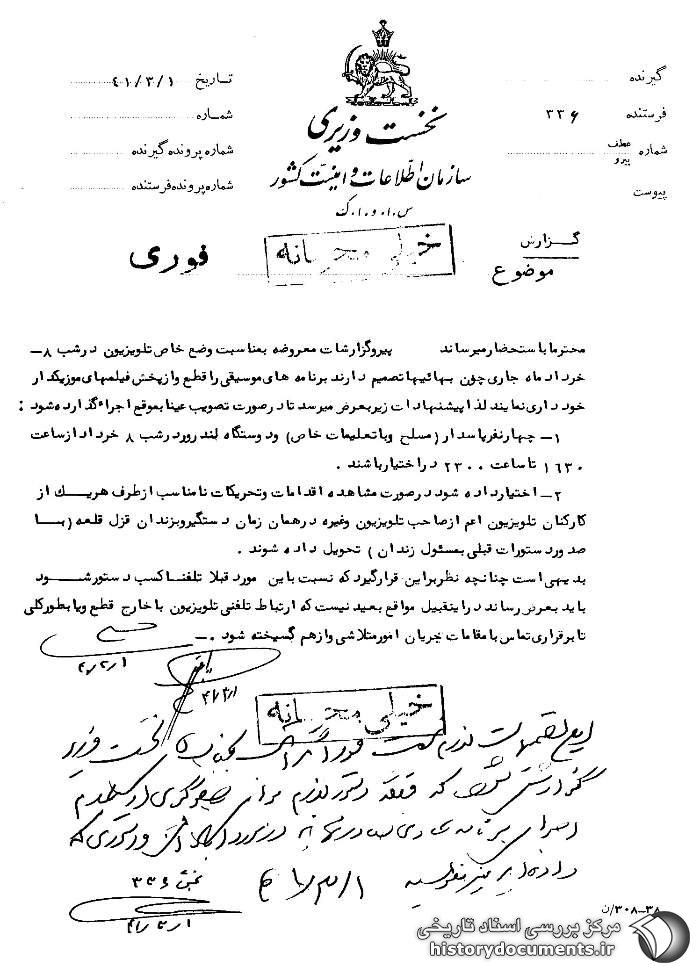 گیرنده
فرستنده ۳۳۶
شماره عطف پیرو
پیوست
نخست وزیری
سازمان اطلاعات و امنیت کشور
س.ا.و.ا.ک
تاریخ ۴۱/۳/۱
شماره
شماره پرونده گیرنده
شماره پرونده فرستنده
گزارش
موضوع
خیلی محرمانه
فوری
محترما باستحضار میرساند پیرو گزارشات معروضه بمناسبت وضع خاص تلویزیون در شب ۸ –
خرداد ماه جاری چون بهائیها تصمیم دارند برنامه های موسیقی را قطع و از پخش فیلمهای موزیکدار
خود داری نمایند لذا پیشنهادات زیر بعرض میرسد تا در صورت تصویب عینا بموقع اجراء گذارده شود :
۱– چهار نفر پاسدار (مسلح و با تعلیمات خاص) و دو دستگاه لندرور در شب ۸ خرداد از ساعت
۱۶۳۰ تا ساعت ۲۳۰۰ در اختیار باشند .
۲– اختیار داده شود در صورت مشاهده اقدامات و تحریکات نامناسب از طرف هر یک از
کارکنان تلویزیون اعم از صاحب تلویزیون وغیره در همان زمان دستگیر و بزندان قزل قلعه (با
صدور دستورات قبلی بمسئول زندان) تحویل داده شوند .
بدیهی است چنانچه نظر بر این قرار گیرد که نسبت باین مورد قبلا تلفنا کسب دستور شود
باید بعرض رساند در اینقبیل مواقع بعید نیست که ارتباط تلفنی تلویزیون با خارج قطع و یا بطور کلی
تا برقراری تماس با مقامات جریان امور متلاشی و از هم گسیخته شود .–
خیلی محرمانه
نخست وزیر
گزارش که دستور لازم برای جلوگیری از
اجرای برنامه
داده اید نیز
۴۱/۳/۱
بخش ۳۳۶
۳۸–۳۰۸/ن
مرکز بررسی اسناد تاریخی
historydocuments.ir